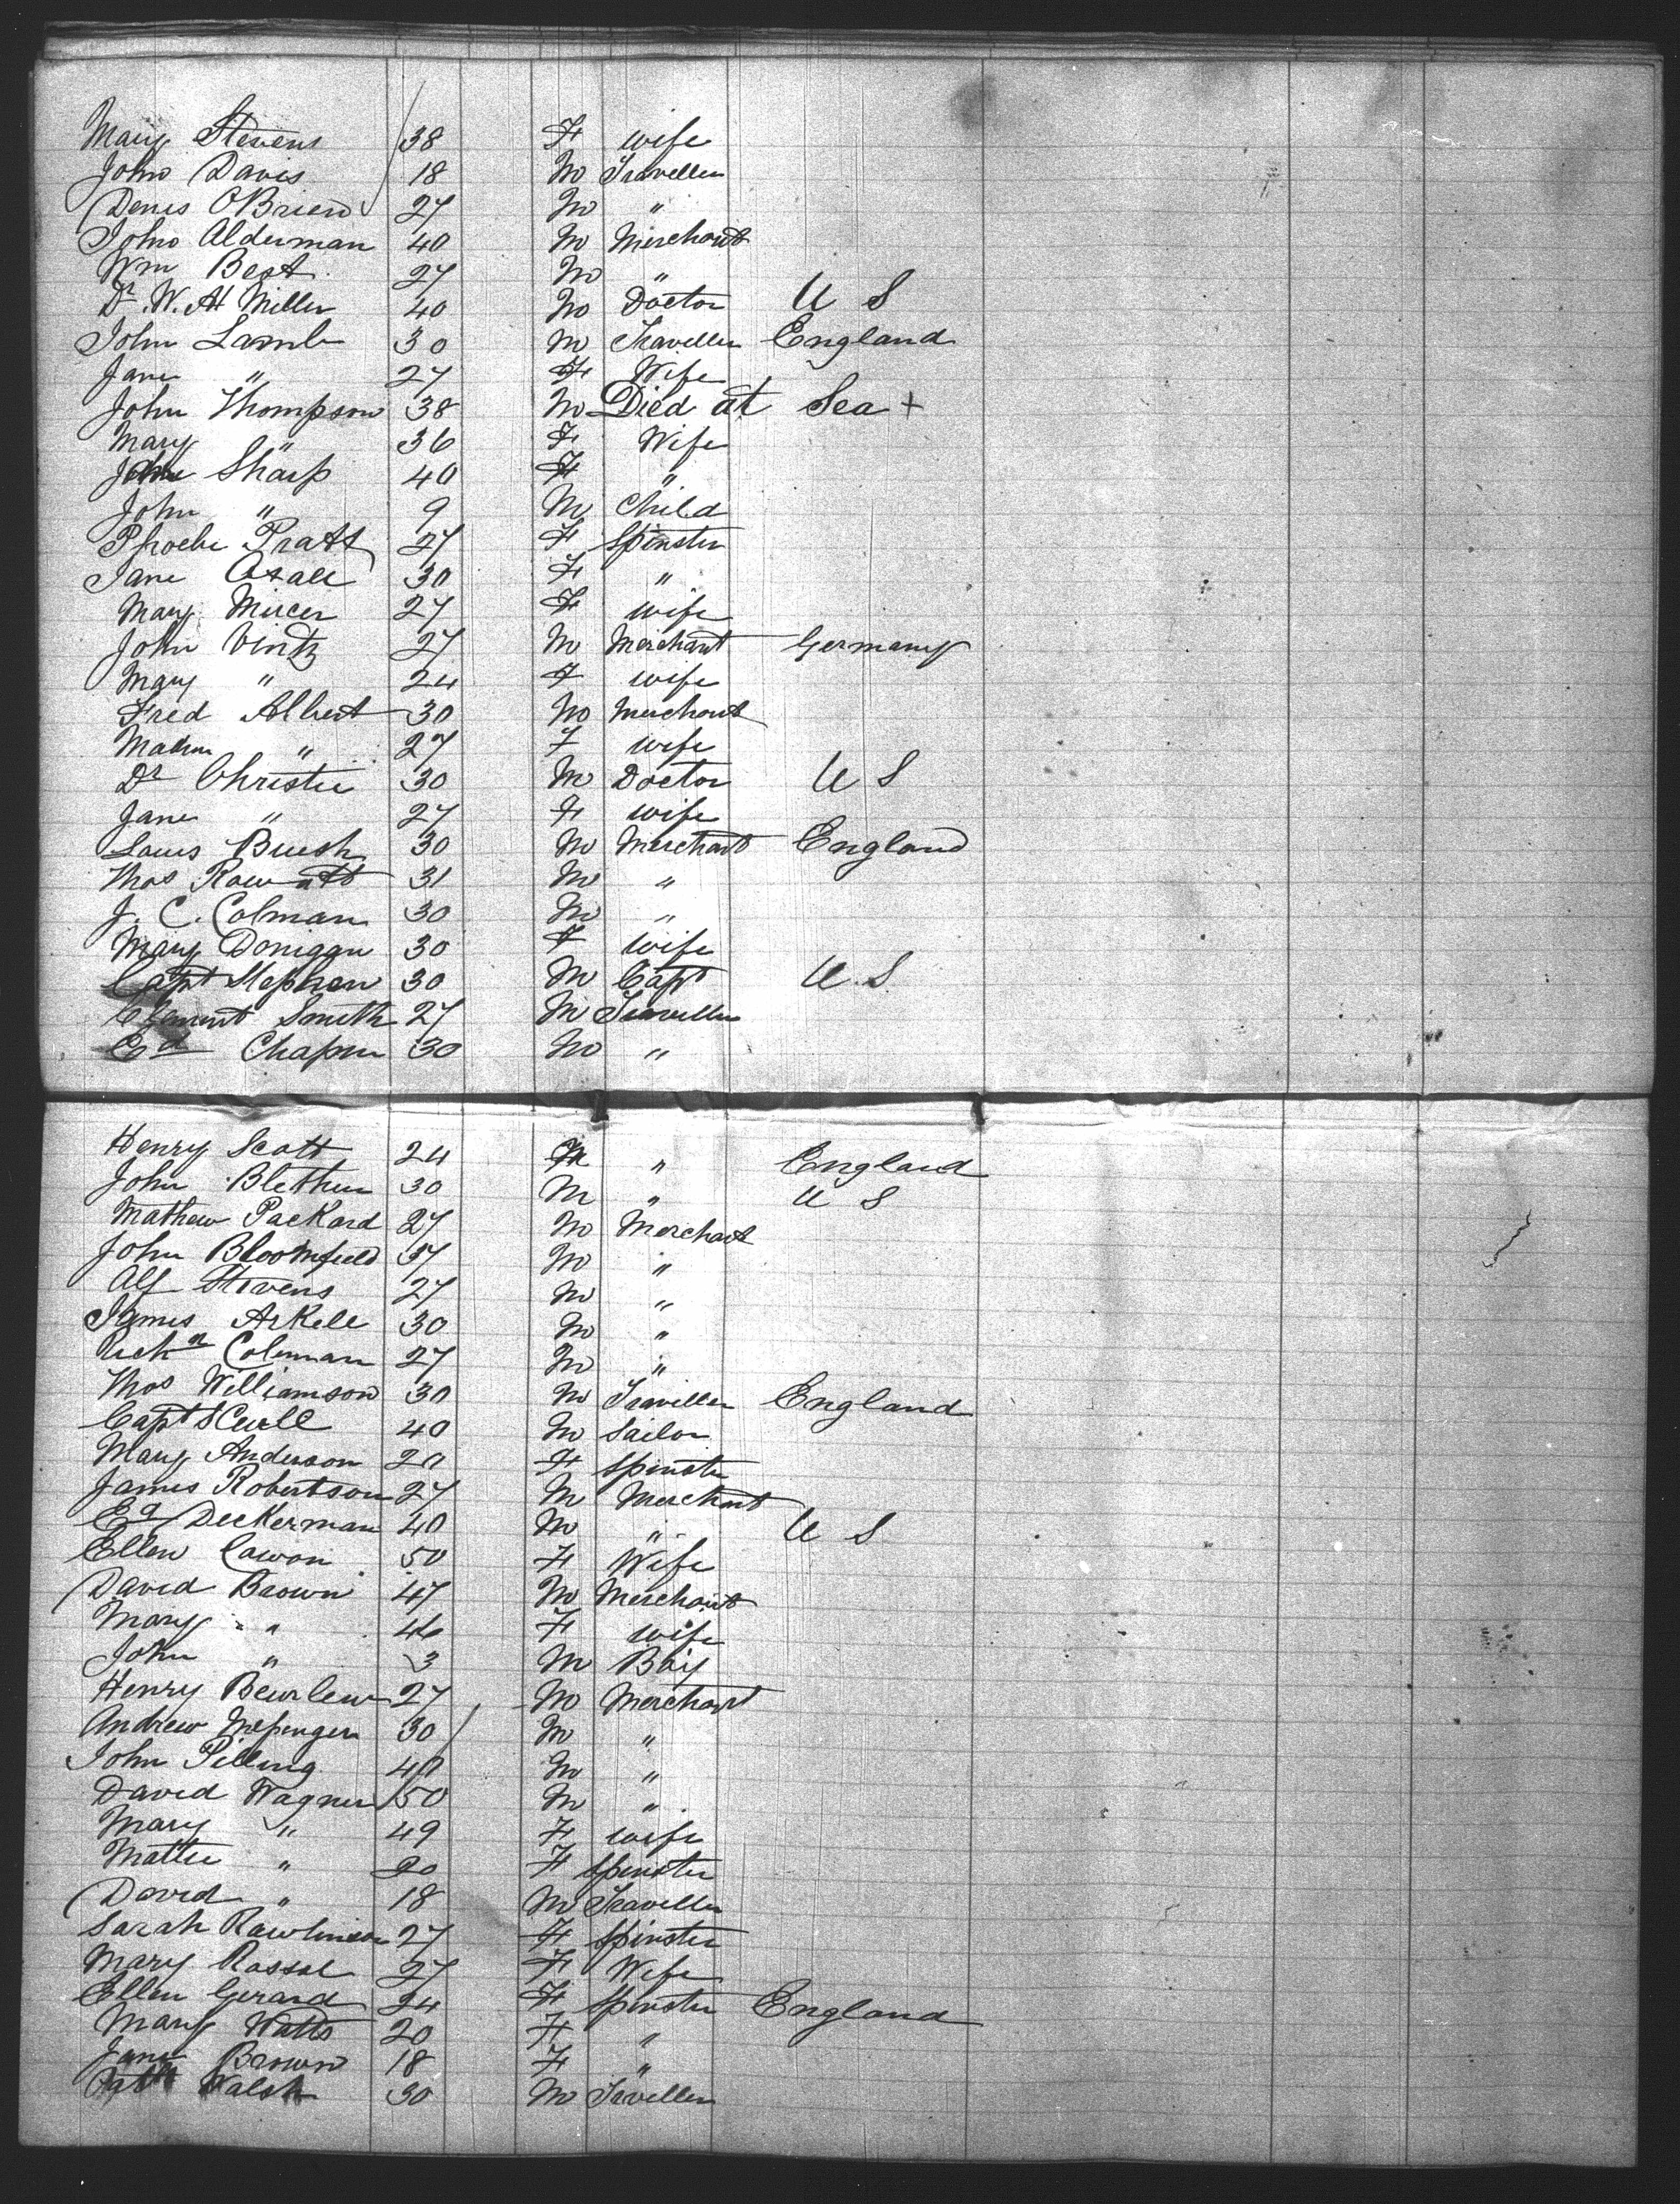 Mary Stevens 38 F wife
John Davis 18 M Traveller
Denis OBrien 27 M "
John Alderman 40 M Merchant
Wm Best 27 M "
Dr. W. H Miller 40 M Doctor U S
John Lamb 30 M Traveller England
Jane " 27 F Wife
John Thompson 38 M Died at Sea +
Mary " 36 F Wife
Sharp 40 F "
John " 9 M Child
Phoebe Pratt 27 F Spinster
Jane 30 F "
Mary Mercer 27 F wife
John Vintz 27 M Merchant Germany
Mary " 24 F wife
Fred Albert 30 M Merchant
" 27 F wife
Dr Christie 30 M Doctor U S
Jane " 27 F wife
Louis Bush 30 M Merchant England
Thos Rowatt 31 M "
J. C. Colman 30 M "
Mary Donigan 30 F wife
Capt Stephen 30 M Capt U S
Clement Smith 27 M Traveller
Ed Chapin 30 M "
Henry Scott 24 M " England
John Blethen 30 M " U S
Mathew Packard 27 M Merchant
John Bloomfield 37 M "
Alf Stevens 27 M "
James Arkell 30 M "
Coleman 27 M "
Thos Williamson 30 M Traveller England
Capt 40 M Sailor
Mary Anderson 20 F Spinster
James Robertson 27 M Merchant
Ed Deckerman 40 M " U S
Ellen Cowan 50 F Wife
David Brown 47 M Merchant
Mary " " 46 F wife
John " 3 M Boy
Henry 27 M Merchant
Andrew 30 M "
John Pilling 40 M "
David Wagner 50 M "
Mary " 49 F wife
Mattie " 20 F Spinster
David " 18 M Traveller
Sarah Rawlinson 27 F Spinster
Mary 27 F Wife
Ellen Gerard 24 F Spinster England
Mary Watts 20 F "
Jane Brown 18 F "
Walsh 30 M Traveller